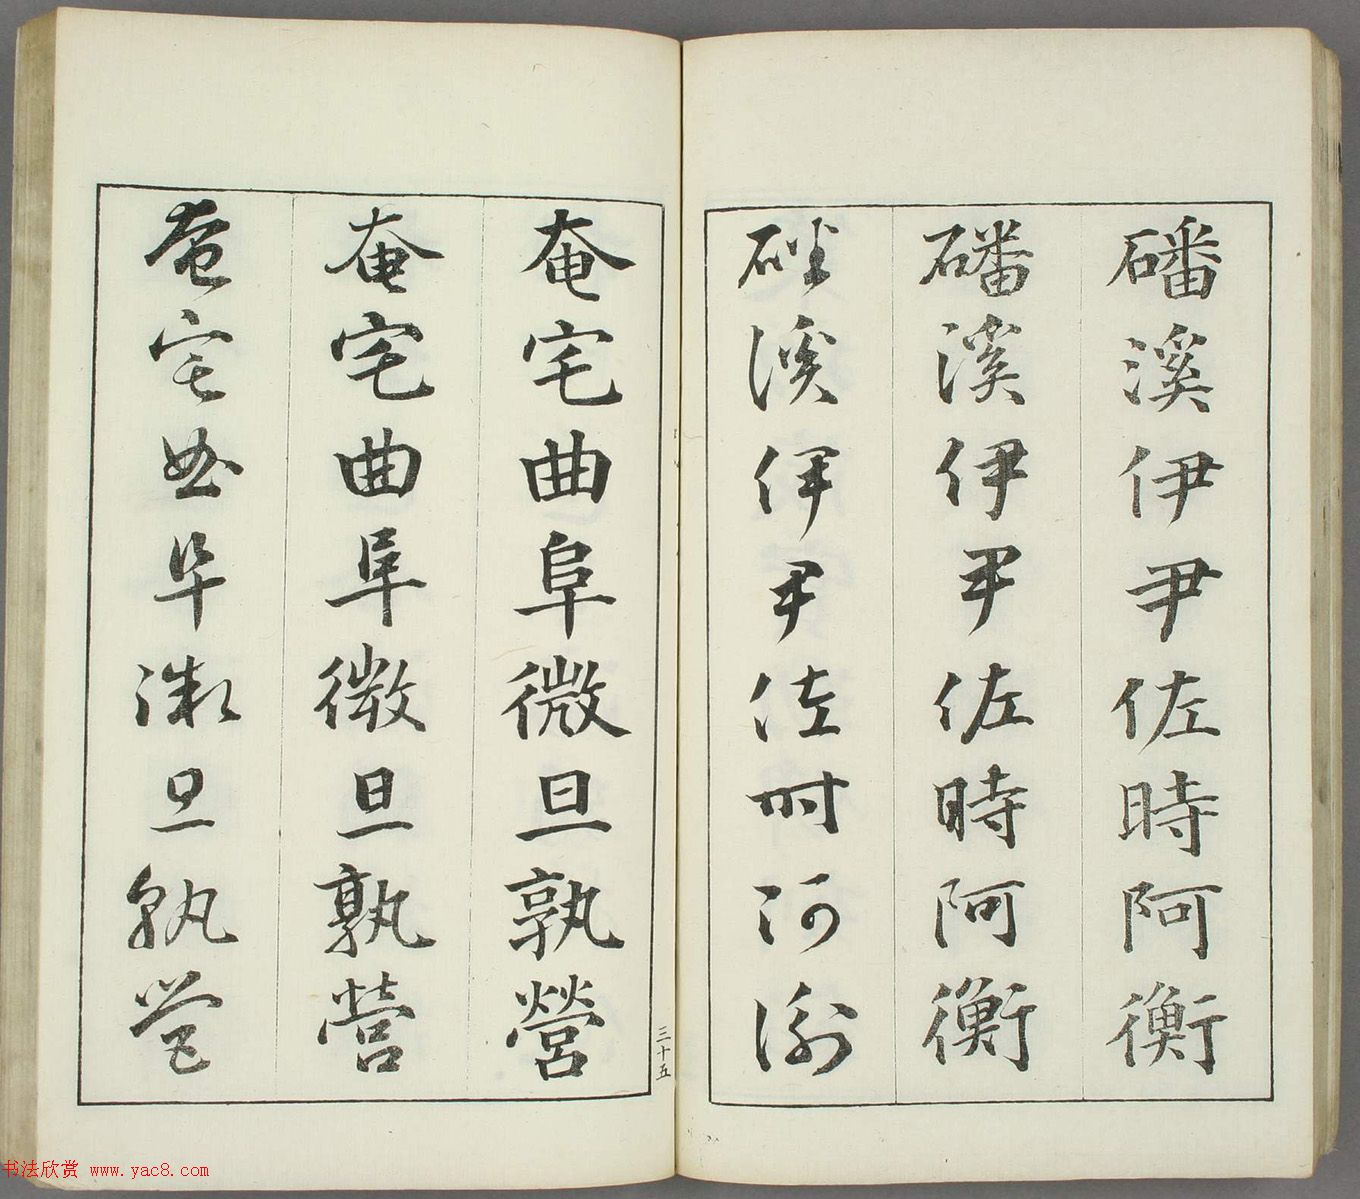 磻溪伊尹佐時阿衡
磻溪伊尹佐時阿衡
磻溪伊尹佐時阿衡
三十五
奄宅曲阜微旦孰營
奄宅曲阜微旦孰營
奄宅曲阜微旦孰營
书法欣赏 www.yac8.com